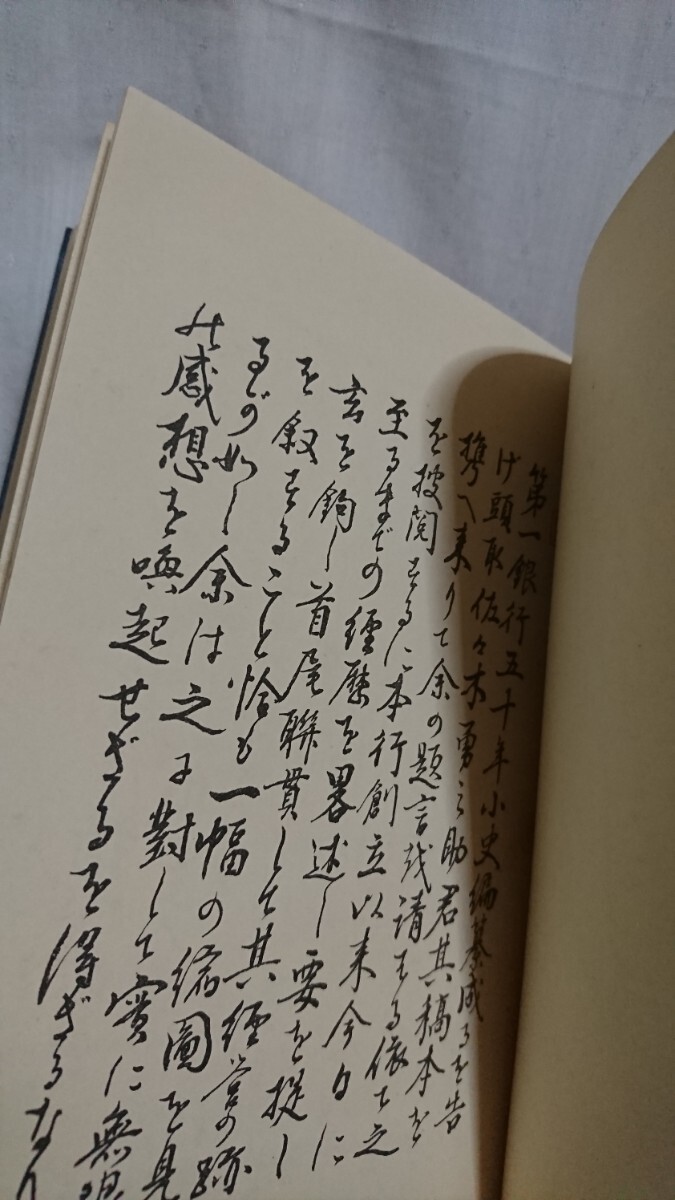 第一銀行五十年小史編纂成るを告
け頭取佐々木勇之助君其稿本を
携へ来りて余の題言を請はる依て之
を披閲するに本行創立以来今日に
至るまての経歴を畧述し要を提し
玄を鉤し首尾聯貫して其経営の跡
を叙すること恰も一幅の縮圖を見
るが如し余は之に對して實に無限
の感想を喚起せざるを得ざるなり